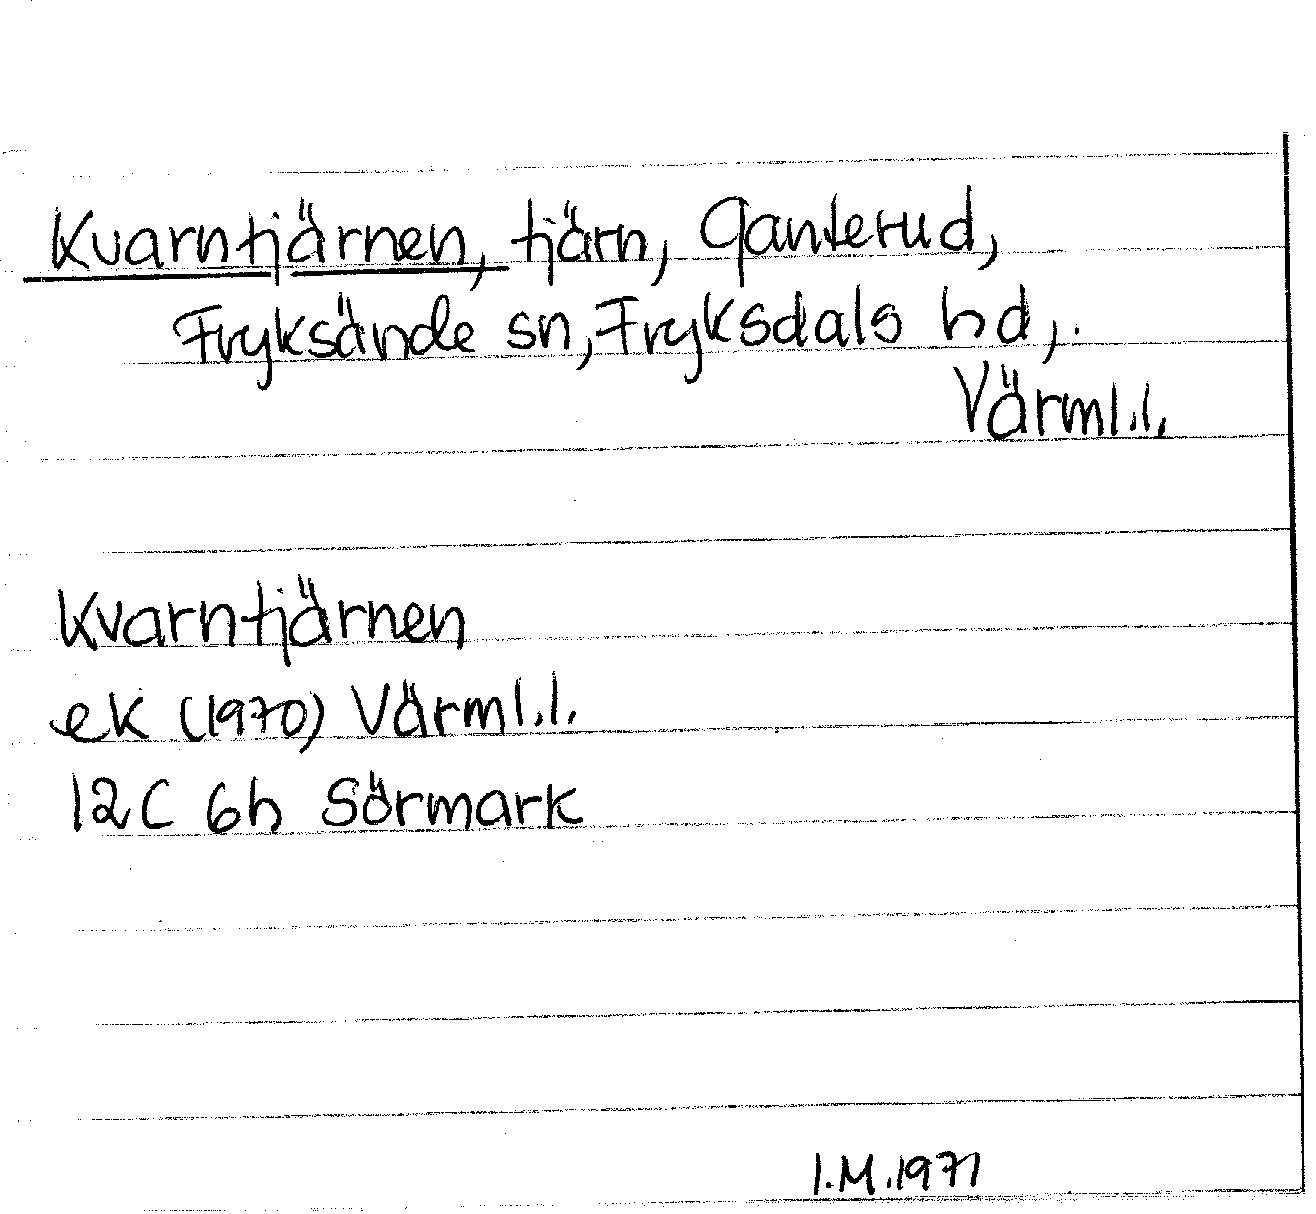 Kvarntjärnen, tjärn, Ganterud,
Fryksände sn, Fryksdals hd,.
Värml.l.
Kvarntjärnen
ek (1970) Värml.l.
12C 6h Sörmark
I.M.1971